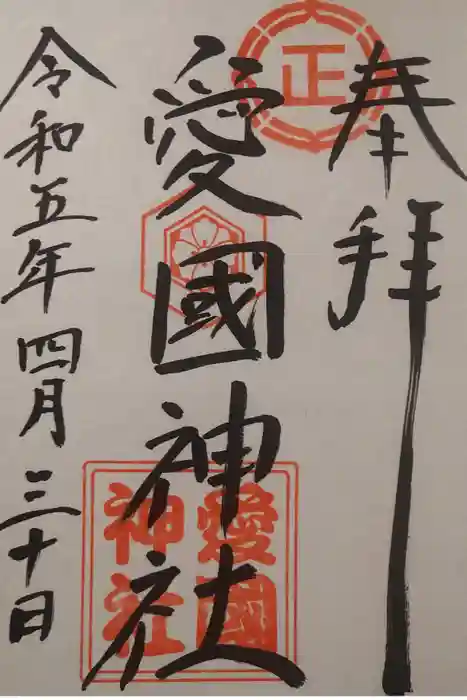 奉拝
正
愛國神社
愛國
神社
令和五年四月三十日